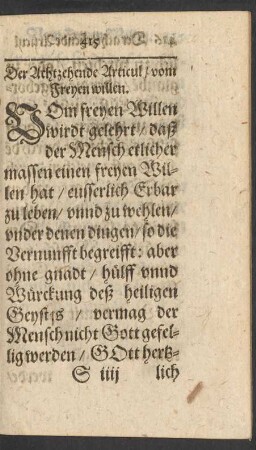 315
Der Achtzehende Articul / vom
Freyen willen.
VOm freyen Willen
wirdt gelehrt / daß
der Mensch etlicher
massen einen freyen Wil-
len hat / eusserlich Erbar
zu leben / vnnd zu wehlen /
vnder denen dingen / so die
Vernunfft begreifft: aber
ohne gnadt / hülff vnnd
Würckung deß heiligen
Geystes / vermag der
Mensch nicht Gott gefel-
lig werden / GOtt hertz-
S iiij lich